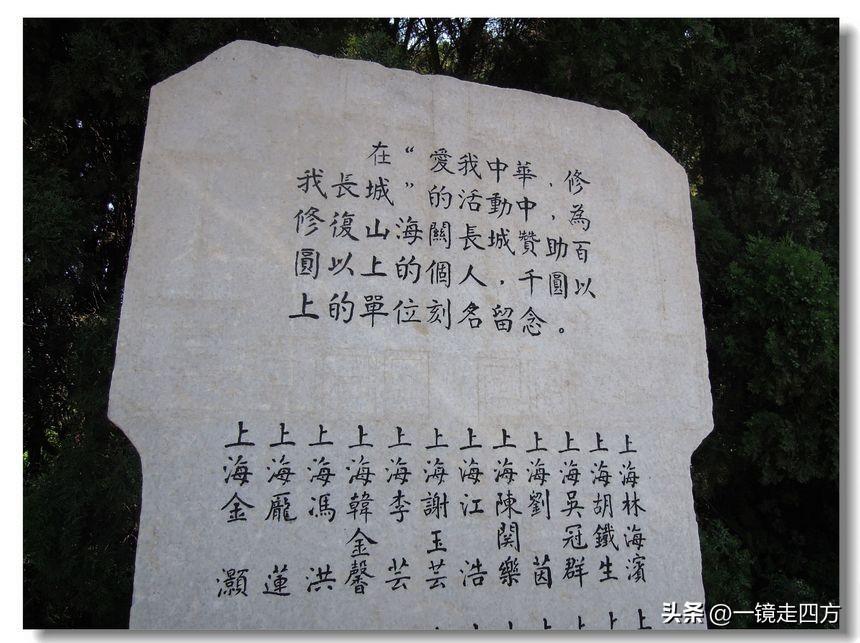 在“愛我中華，修
我長城”的活動中，為
修復山海關長城贊助百
圓以上的個人，千圓以
上的單位刻名留念。
上海金灝
上海龐蓮
上海馮洪
上海韓金馨
上海李芸
上海謝玉芸
上海江浩
上海陳関樂
上海劉茵
上海吳冠群
上海胡鐵生
上海林海濱
头条 @一镜走四方